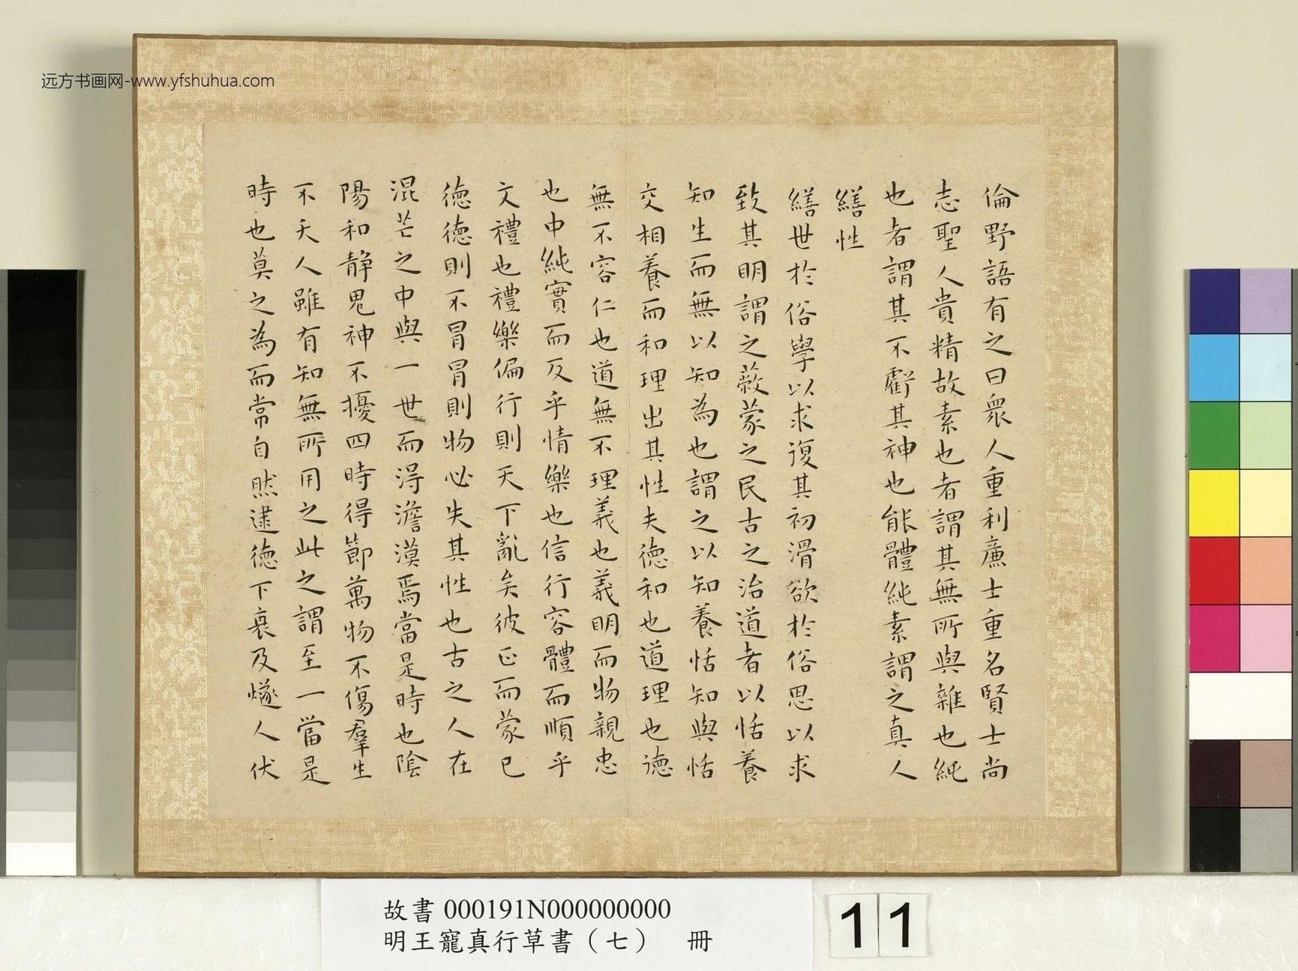 远方书画网-www.yfshuhua.com
倫野語有之曰衆人重利廉士重名賢士尚
志聖人貴精故素也者謂其無所與雜也純
也者謂其不虧其神也能體純素謂之真人
繕性
繕世於俗學以求復其初滑欲於俗思以求
致其明謂之蔽蒙之民古之治道者以恬養
知生而無以知為也謂之以知養恬知與恬
交相養而和理出其性夫德和也道理也德
無不容仁也道無不理義也義明而物親忠
也中純實而反乎情樂也信行容體而順乎
文禮也禮樂偏行則天下亂矣彼正而蒙已
德德則不冒冒則物必失其性也古之人在
混芒之中與一世而得澹漠焉當是時也陰
陽和靜鬼神不擾四時得節萬物不傷羣生
不夭人雖有知無所用之此之謂至一當是
時也莫之為而常自然逮德下衰及燧人伏
故書 000191N000000000
明王寵真行草書（七） 冊
11